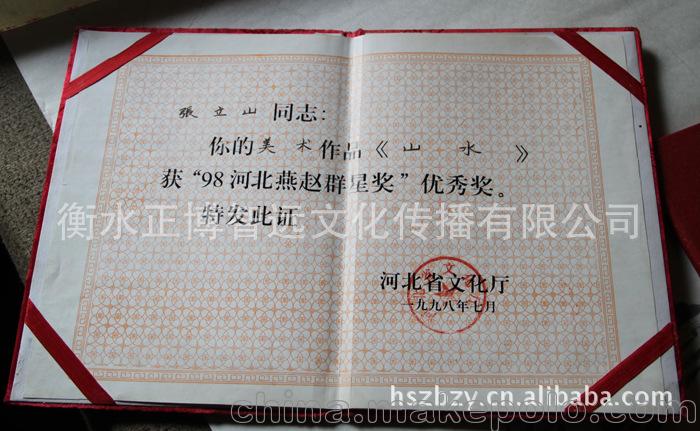 張立山 同志：
你的美术作品《山水》
获“98河北燕赵群星奖”优秀奖。
特发此证
衡水正博智远文化传播有限公司
河北省文化厅
一九九八年七月
hszbzy.cn.alibaba.com
china.makepolo.com